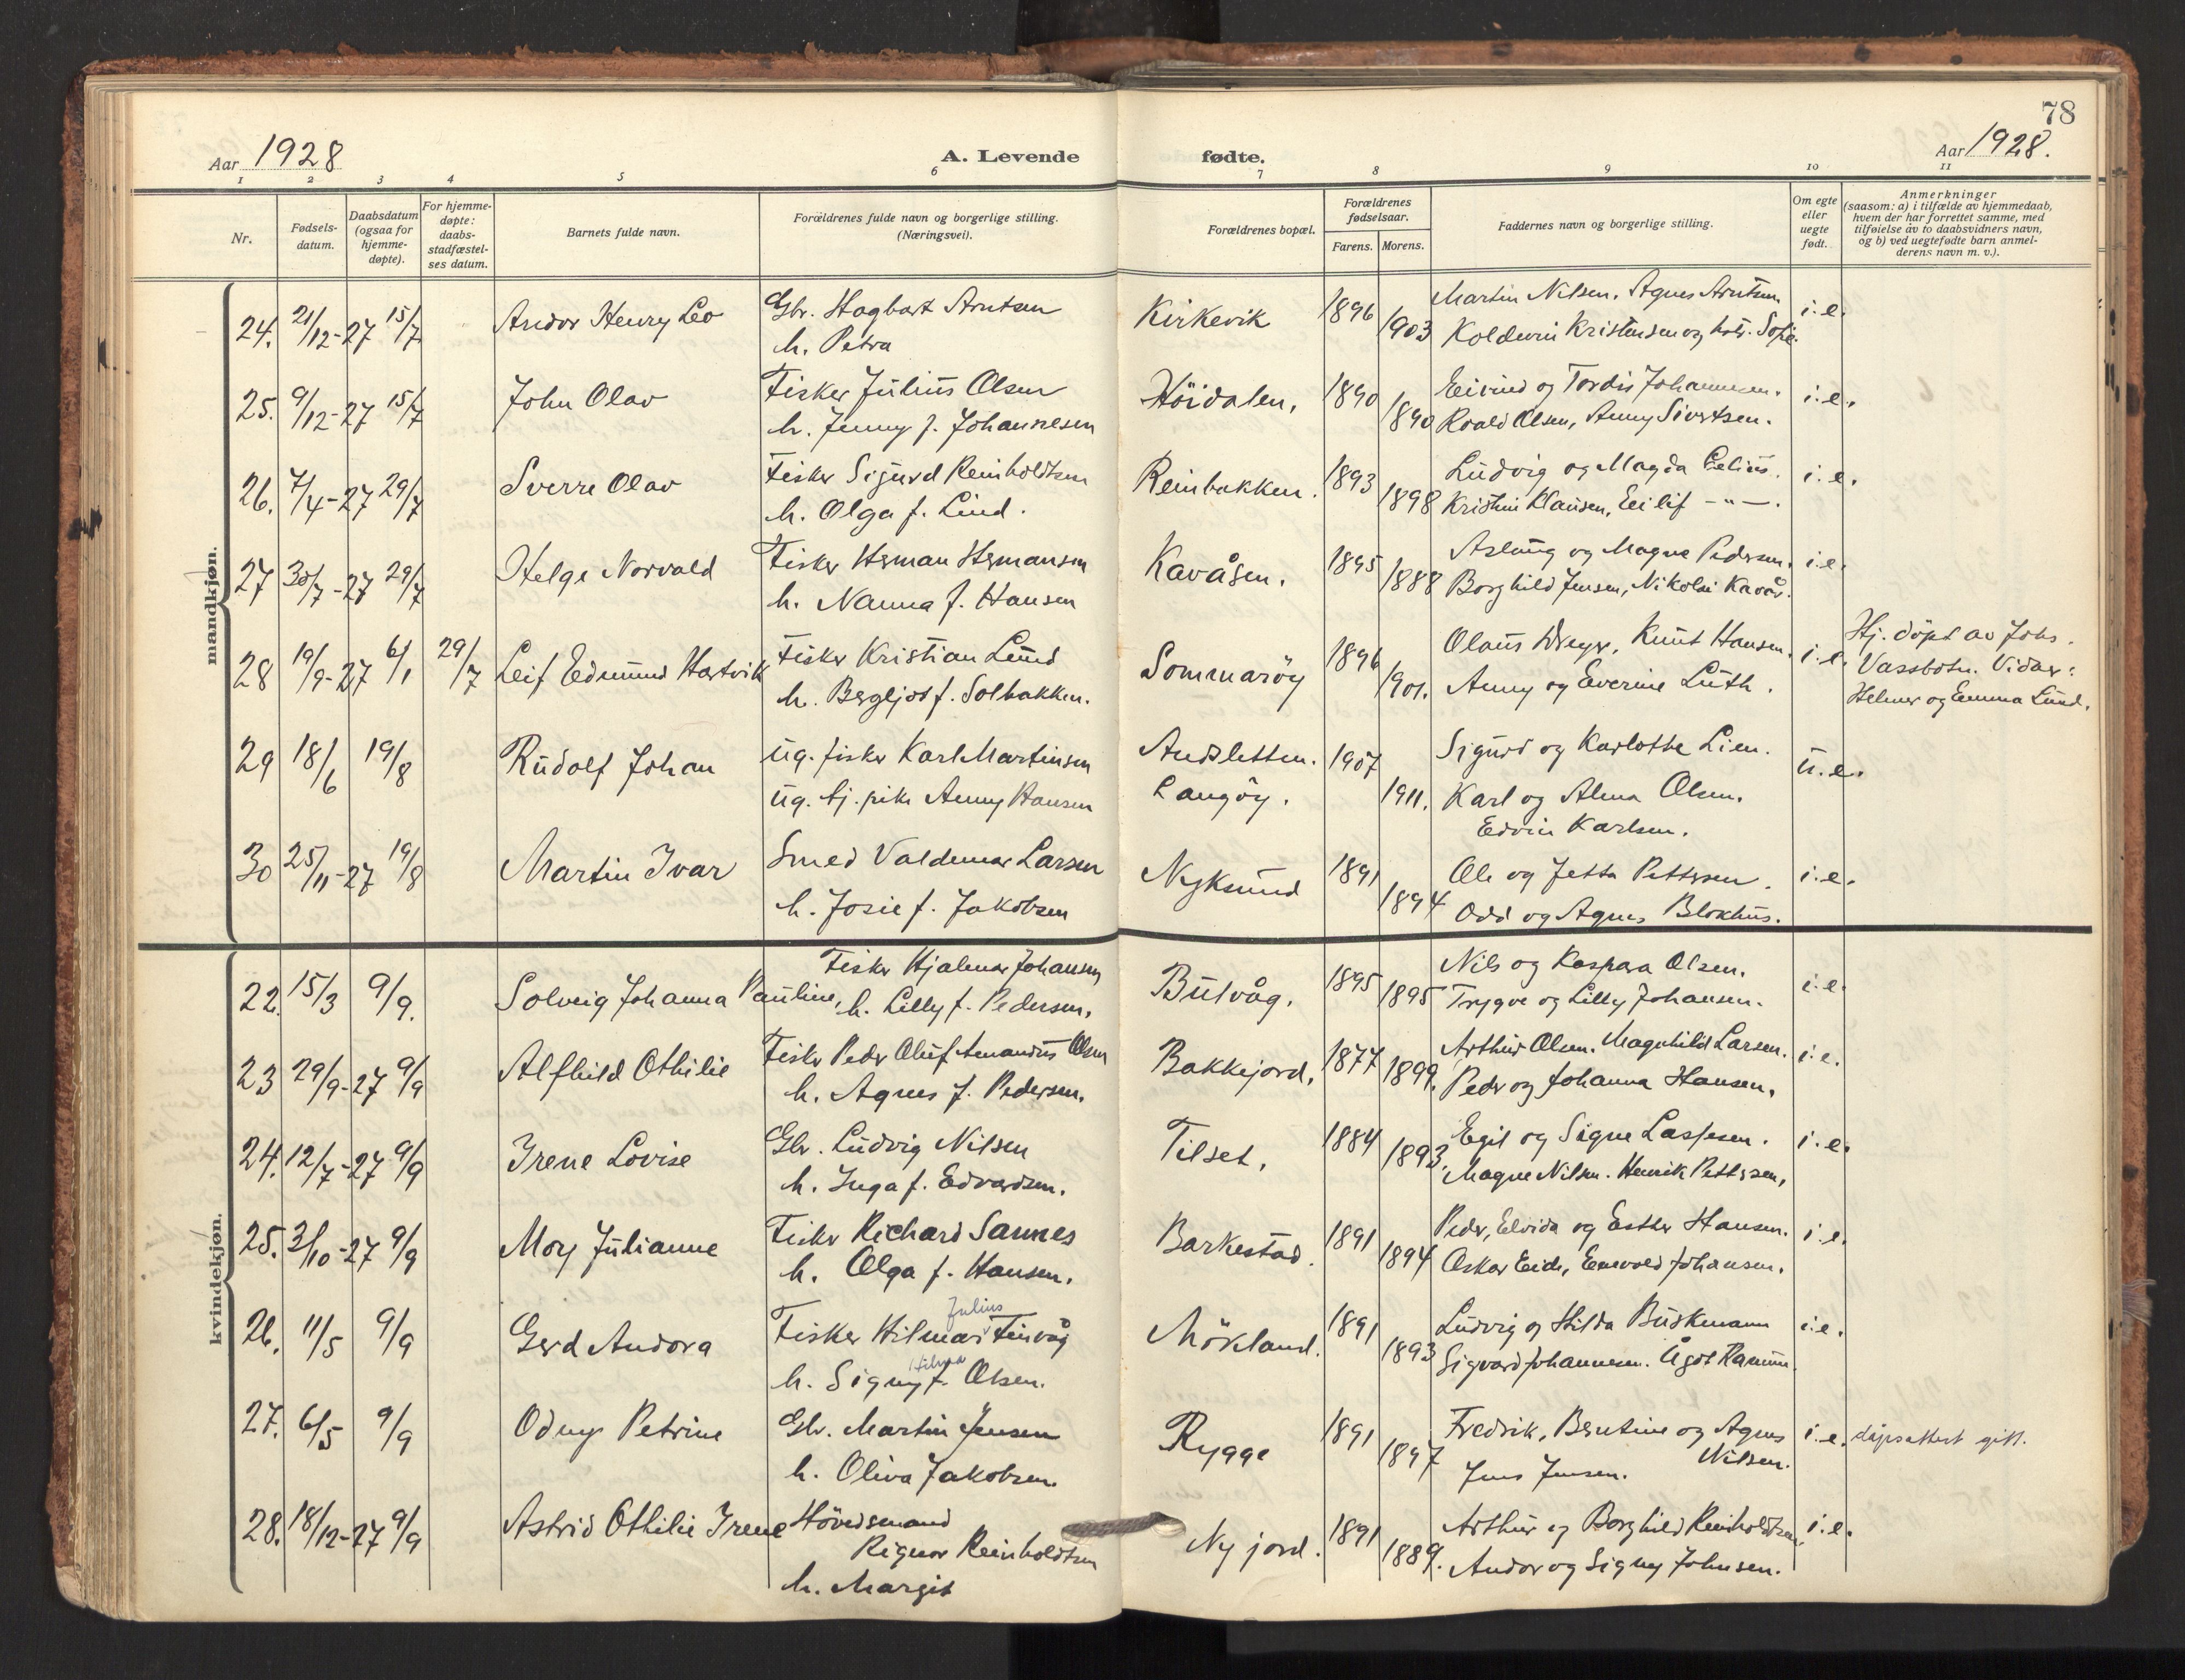 78
Aar 1928
A. Levende
fødte.
Aar 1928.
1 2 3 4 5 6 7 8 9 10 11
Nr.
Fødsels-
datum.
Daabsdatum
(ogsaa for
hjemme-
døpte).
For hjemme-
døpte:
daabs-
stadfæstel-
ses datum.
Barnets fulde navn.
Forældrenes fulde navn og borgerlige stilling.
(Næringsvei).
Forældrenes bopæl.
Forældrenes
fødselsaar.
Farens. Morens.
Faddernes navn og borgerlige stilling.
Om egte
eller
uegte
født.
Anmerkninger
(saasom: a) i tilfælde av hjemmedaab,
hvem der har forrettet samme, med
tilføielse av to daabsvidners navn,
og b) ved uegtefødte barn anmel-
derens navn m. v.).
mandkjøn.
24. 21/12-27 15/7 Andor Henry Leo Gbr. Hagbart Arntsen Kirkevik 1896 Martin Nilsen. Agnes Arntsen i.e.
h. Petra 1903 Koldevin Kristensen og hstr. Sofie.
25. 9/12-27 15/7 John Olav Fisker Julius Olsen Höidalen. 1890 Eivind og Tordis Johannesen. i.e.
h. Jenny f. Johannesen 1890 Roald Olsen, Anny Sivertsen.
26. 7/4-27 29/7 Sverre Olav Fisker Sigurd Reinholdtsen Reinbakken. 1893 Ludvig og Magda Celius. i.e.
h. Olga f. Lind. 1898 Kristin Klausen, Eilif -"-.
27 30/7-27 29/7 Helge Norvald Fisker Herman Hermansen Kavåsen. 1895 Aslaug og Magne Pedersen. i.e.
h. Nanna f. Hansen 1888 Borghild Jensen, Nikolai Kavås.
28 19/9-27 6/1 29/7 Leif Edmund Hartvik Fisker Kristian Lund Sommaröy 1896 Olaus Dreyer, Knut Hansen. i.e. Hj. döpt av Johs.
h. Bergljot f. Solbakken. 1901. Anny og Everine Luth. Vassbotn. Vidner:
Helmer og Emma Lund.
29 18/6 19/8 Rudolf Johan ug. fisker Karl Martinsen Andsletten. 1907 Sigurd og Karlotte Lien. u.e.
ug. tj. pike Anny Hansen Langöy. 1911. Karl og Alma Olsen.
Edvin Karlsen.
30 25/11-27 19/8 Martin Ivar Smed Valdemar Larsen Nyksund 1891 Ole og Jetta Pettersen. i.e.
h. Josie f. Jakobsen 1894 Odd og Agnes Blokhus.
kvindekjøn.
22. 15/3 9/9. Solveig Johanna Pauline, Fisker Hjalmar Johansen Bulvåg. 1895 Nils og Kaspara Olsen. i.e.
h. Lilly f. Pedersen. 1895 Trygve og Lilly Johansen.
23 29/9-27 9/9 Alfhild Othilie Fisker Peder Oluf Amandus Olsen Bakkejord. 1877 Arthur Olsen. Magnhild Larsen. i.e.
h. Agnes f. Pedersen. 1899. Peder og Johanna Hansen.
24. 12/7-27 9/9 Irene Lovise Gbr. Ludvig Nilsen Tilset. 1884 Egil og Signe Lassesen. i.e.
h. Inga f. Edvardsen. 1893. Magne Nilsen. Henrik Pettersen.
25. 3/10-27 9/9 Moy Julianne Fisker Richard Sannes Barkestad. 1891 Peder, Elvida og Esther Hansen. i.e.
h. Olga f. Hansen. 1894 Oskar Eide, Enevold Johansen.
Julius
26. 11/5 9/9 Gerd Andora Fisker Hilmar Finvåg Mökland. 1891 Ludvig og Hilda Buskmann i.e.
Hilma
h. Signy f. Olsen. 1893 Sigvard Johannesen. Ågot
27. 6/5 9/9 Odny Petrine Gbr. Martin Jensen Rygge 1891 Fredrik, Bentine og Agnes i.e. dåpsattest gitt.
Nilsen.
h. Oliva Jakobsen. 1897 Jens Jensen.
28. 18/12-27 9/9 Astrid Othilie Irene Hövedsmand Ny jord. 1891 Arthur og Borghild Reinholdtsen. i.e.
Rignor Reinholdtsen 1889. Andor og Signy Johnsen.
h. Margit